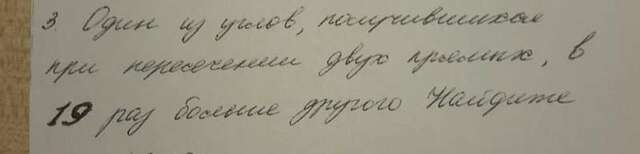 3. Один из углов, получившихся
при пересечении двух прямых, в
19 раз больше другого Найдите